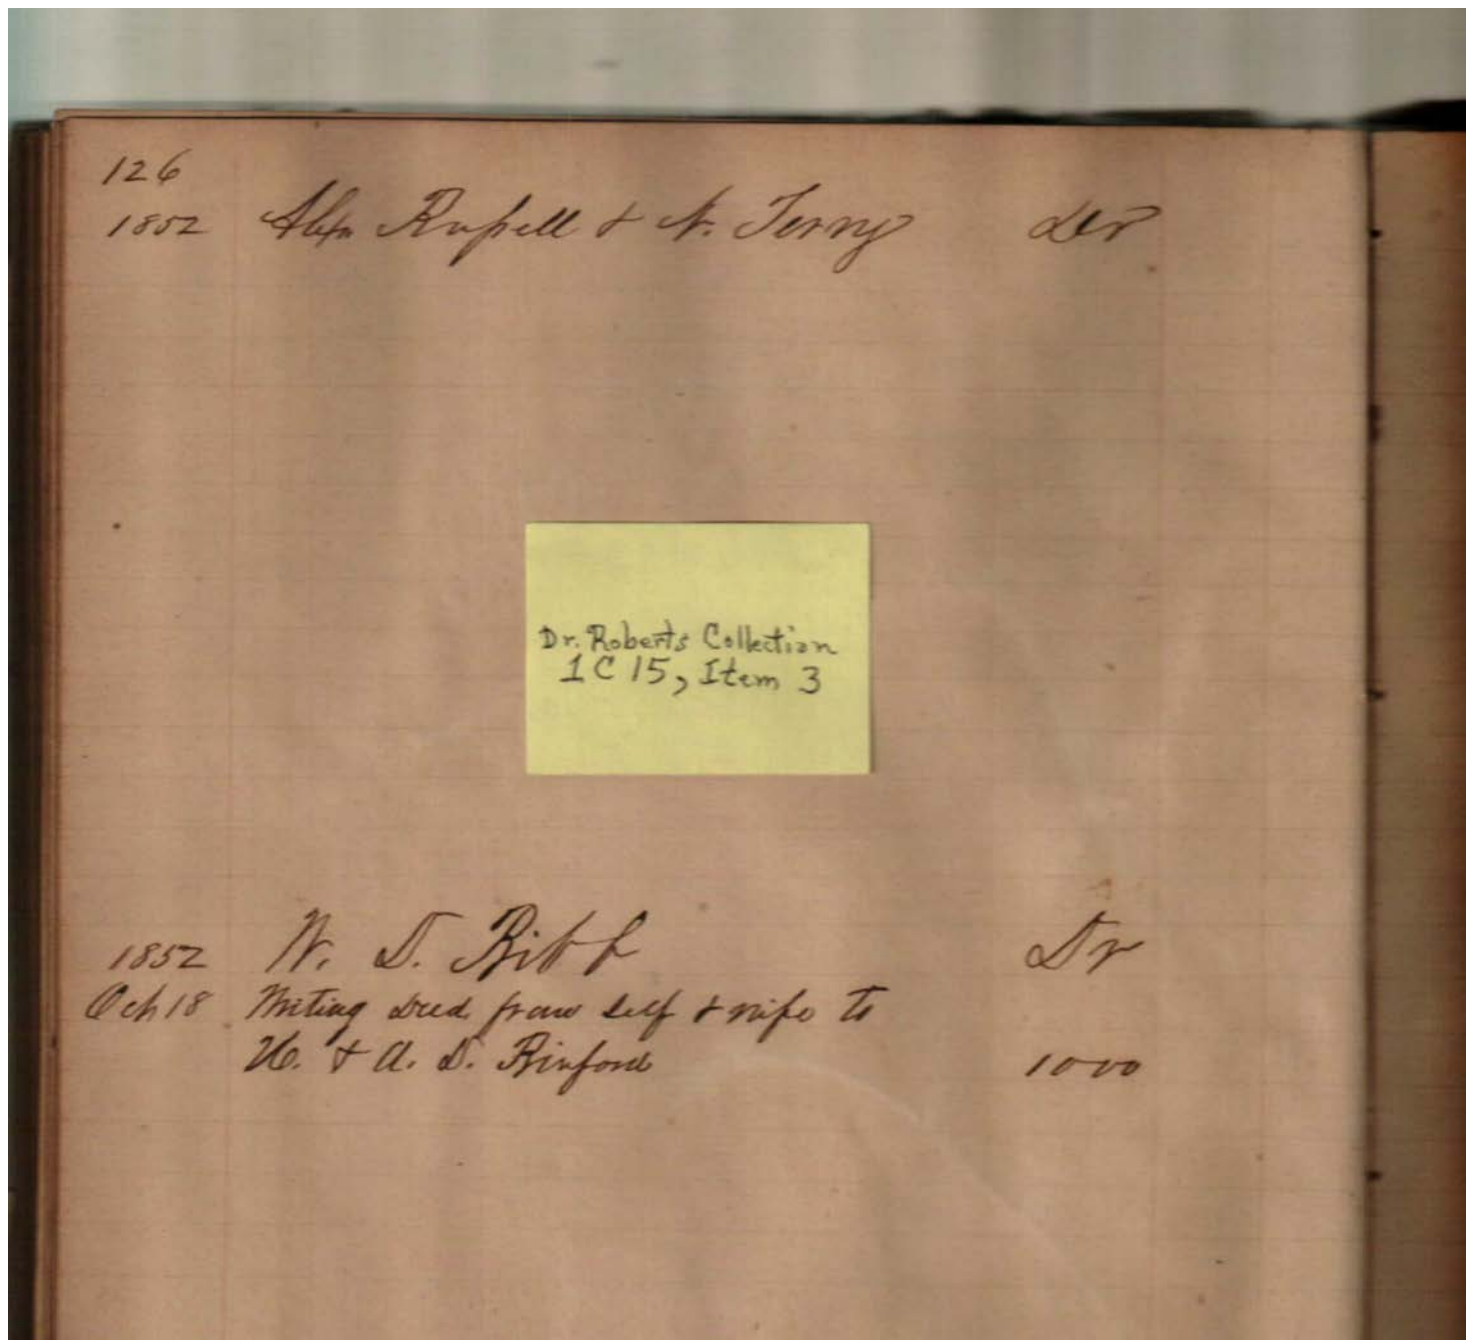 126
1852 Alexr Russell & N. Terry Dr
Dr. Roberts Collection
1 C 15, Item 3
1852 W. D. Bibb Dr
Oct 18 Writing deed from self & wife to
H. & A. D. Binford 1000